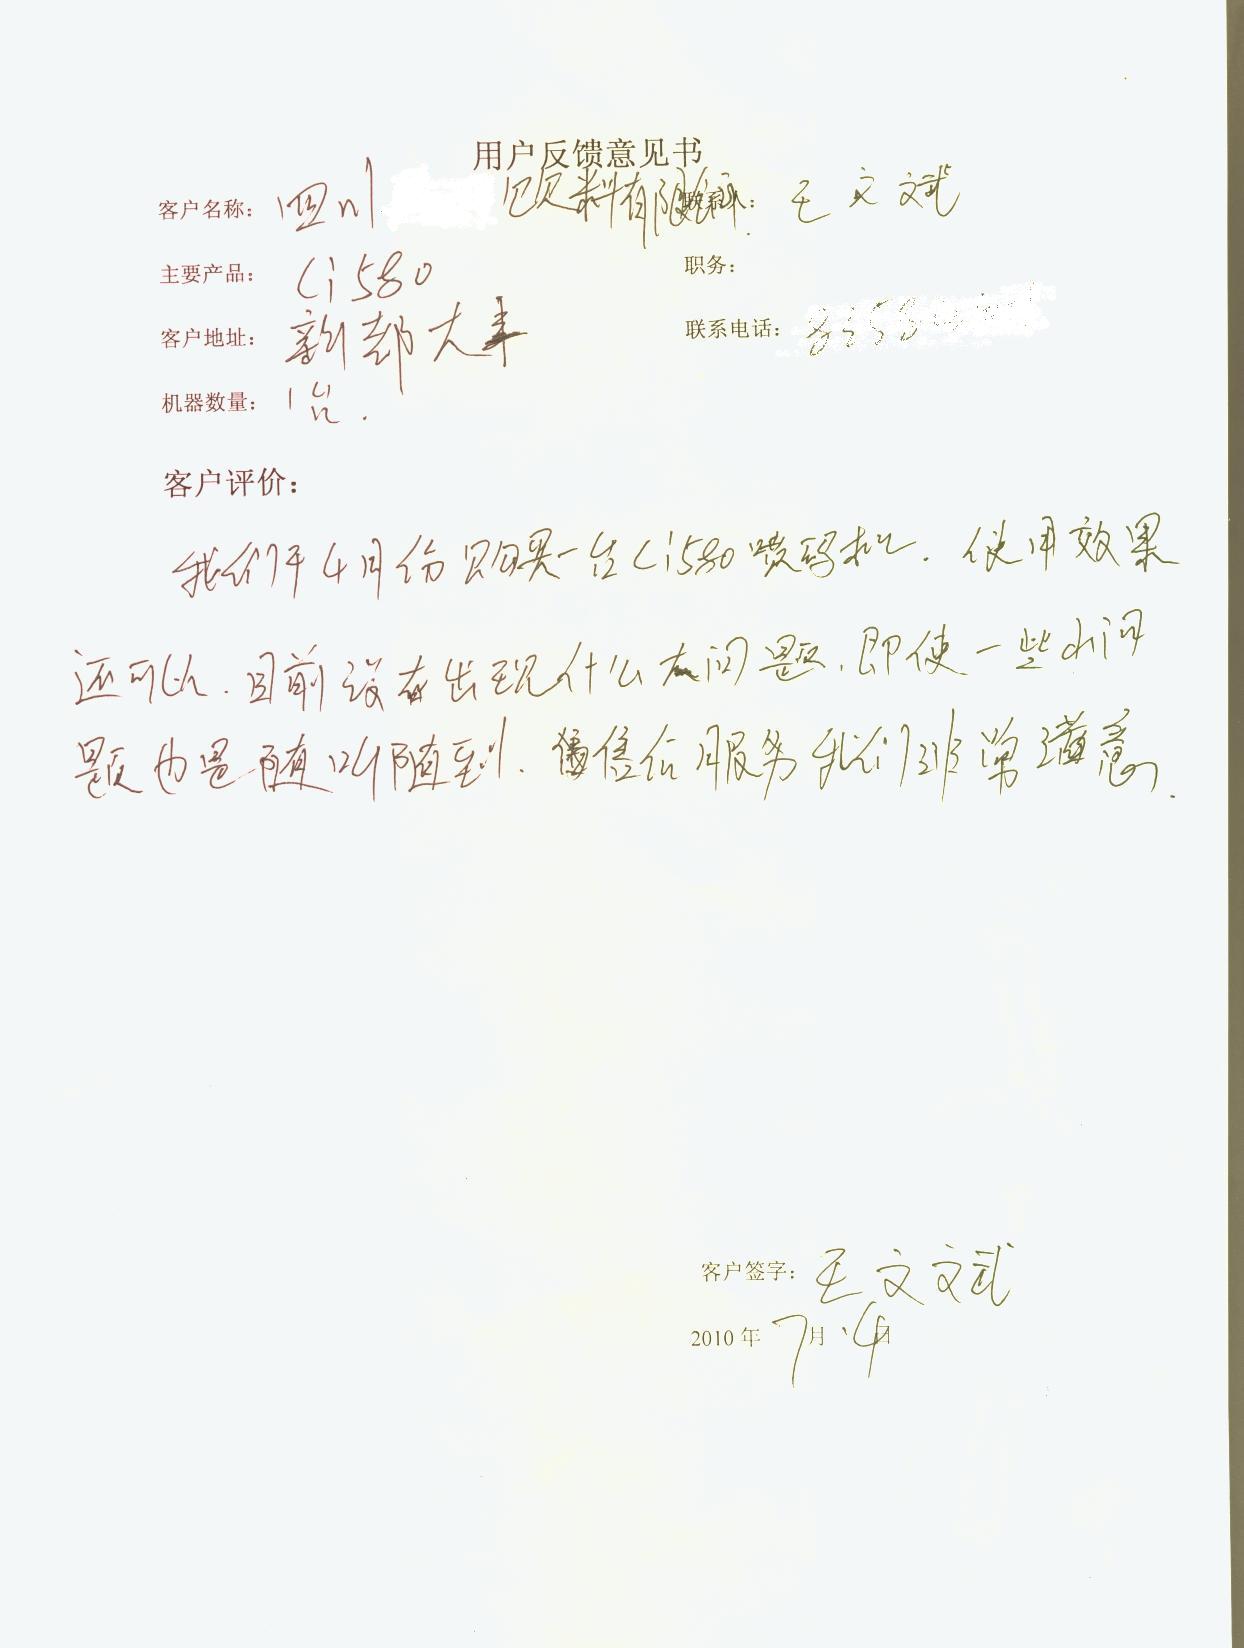 用户反馈意见书
客户名称： 四川 料有限 联系人： 王文斌
主要产品： Ci580 职务：
客户地址： 新都大丰 联系电话： 8358
机器数量： 1台.
客户评价：
我们于4月份购买一台Ci580喷码机. 使用效果
还可以. 目前没有出现什么大问题. 即使一些小问
题也是随叫随到. 售后服务我们非常满意.
客户签字： 王文斌
2010年7月14日